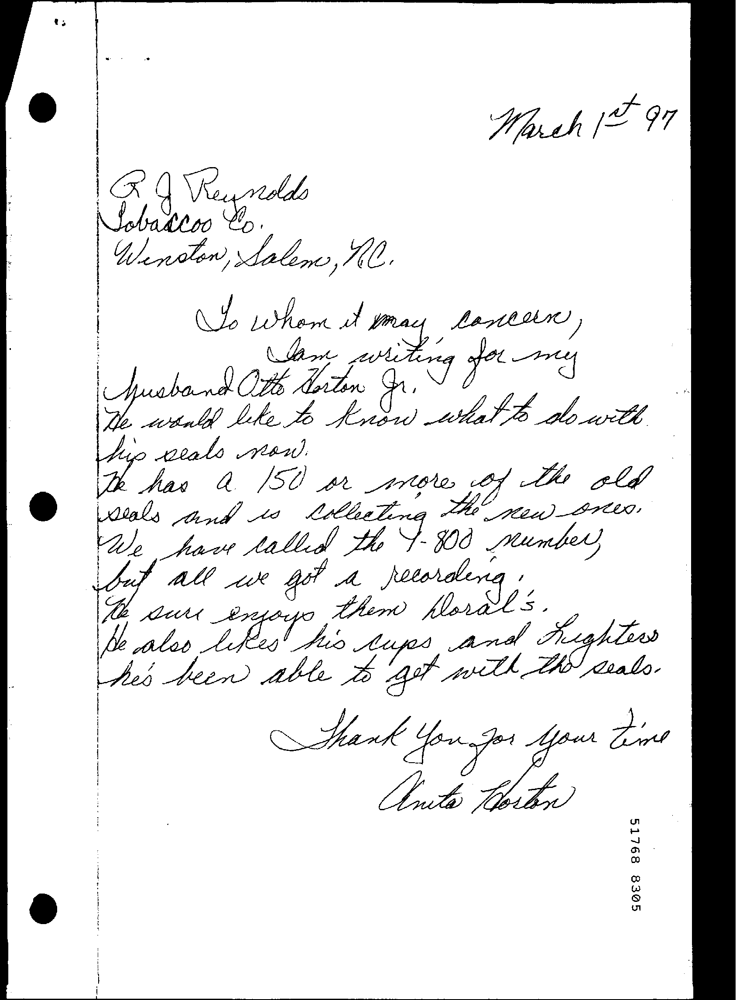 March 1st 97
R J Reynolds
Tobaccoo Co.
Winston, Salem, NC.
To whom it may concern,
I am writing for my
husband Otto Horton Jr.
He would like to know what to do with
his seals now.
He has a 150 or more of the old
seals and is collecting the new ones.
We have called the 1-800 number,
but all we got a recording.
He sure enjoys them Doral's.
He also likes his cups and lighters
he's been able to get with the seals.
Thank You for your time
Anita Horton
51768 8305